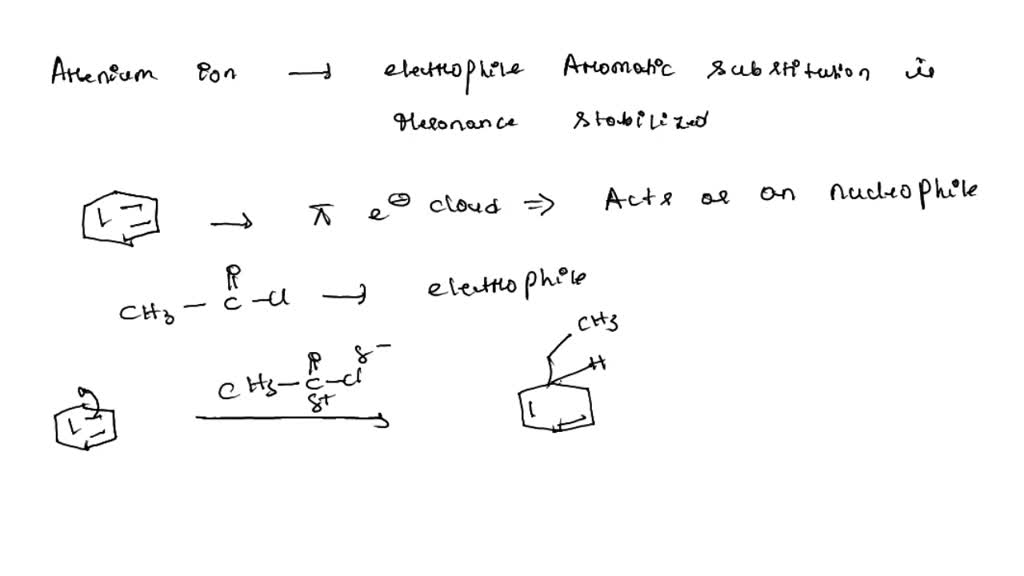 Arenium ion → electrophile Aromatic substitution is
Resonance stabilized
→ π e⊖ cloud ⇒ Acts as an nucleophile
O
CH3 – C – Cl → electrophile
CH3
O δ–
H
CH3 – C – Cl
δ+
+